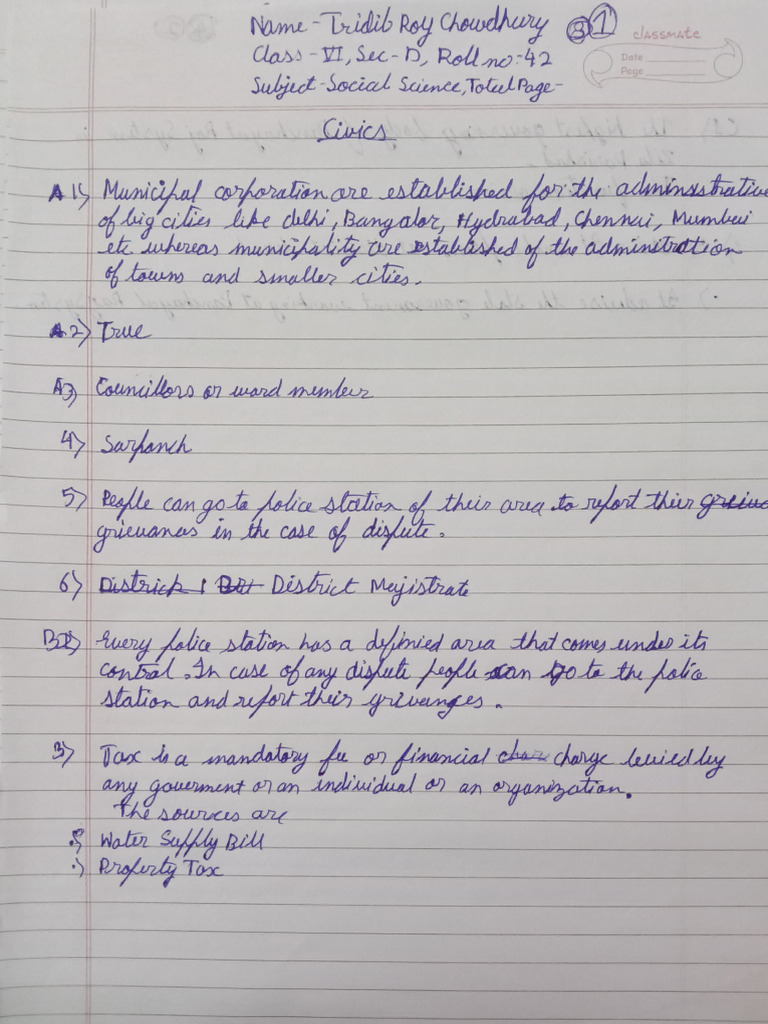 Name - Tridib Roy Chowdhury
3 1
classmate
Class - VI, Sec - D, Roll no:-42
Date
Page
Subject - Social Science, Total Page -
Civics
A 1) Municipal corporation are established for the adminsstrative
of big cities like delhi, Bangalor, Hydrabad, Chennai, Mumbai
etc whereas municipality are established of the adminitration
of towns and smaller cities.
A 2) True
A3) Councillors or ward member
4) Sarpanch
5) People can go to police station of their area to report their
grievances in the case of dispute.
6) District Majistrate
B2) Every police station has a definied area that comes under its
control. In case of any dispute people can go to the police
station and report their grivenges.
3) Tax is a mandatory fee or financial charge levied by
any goverment or an individual or an organization.
The sources are
Water Supply Bill
Property Tax